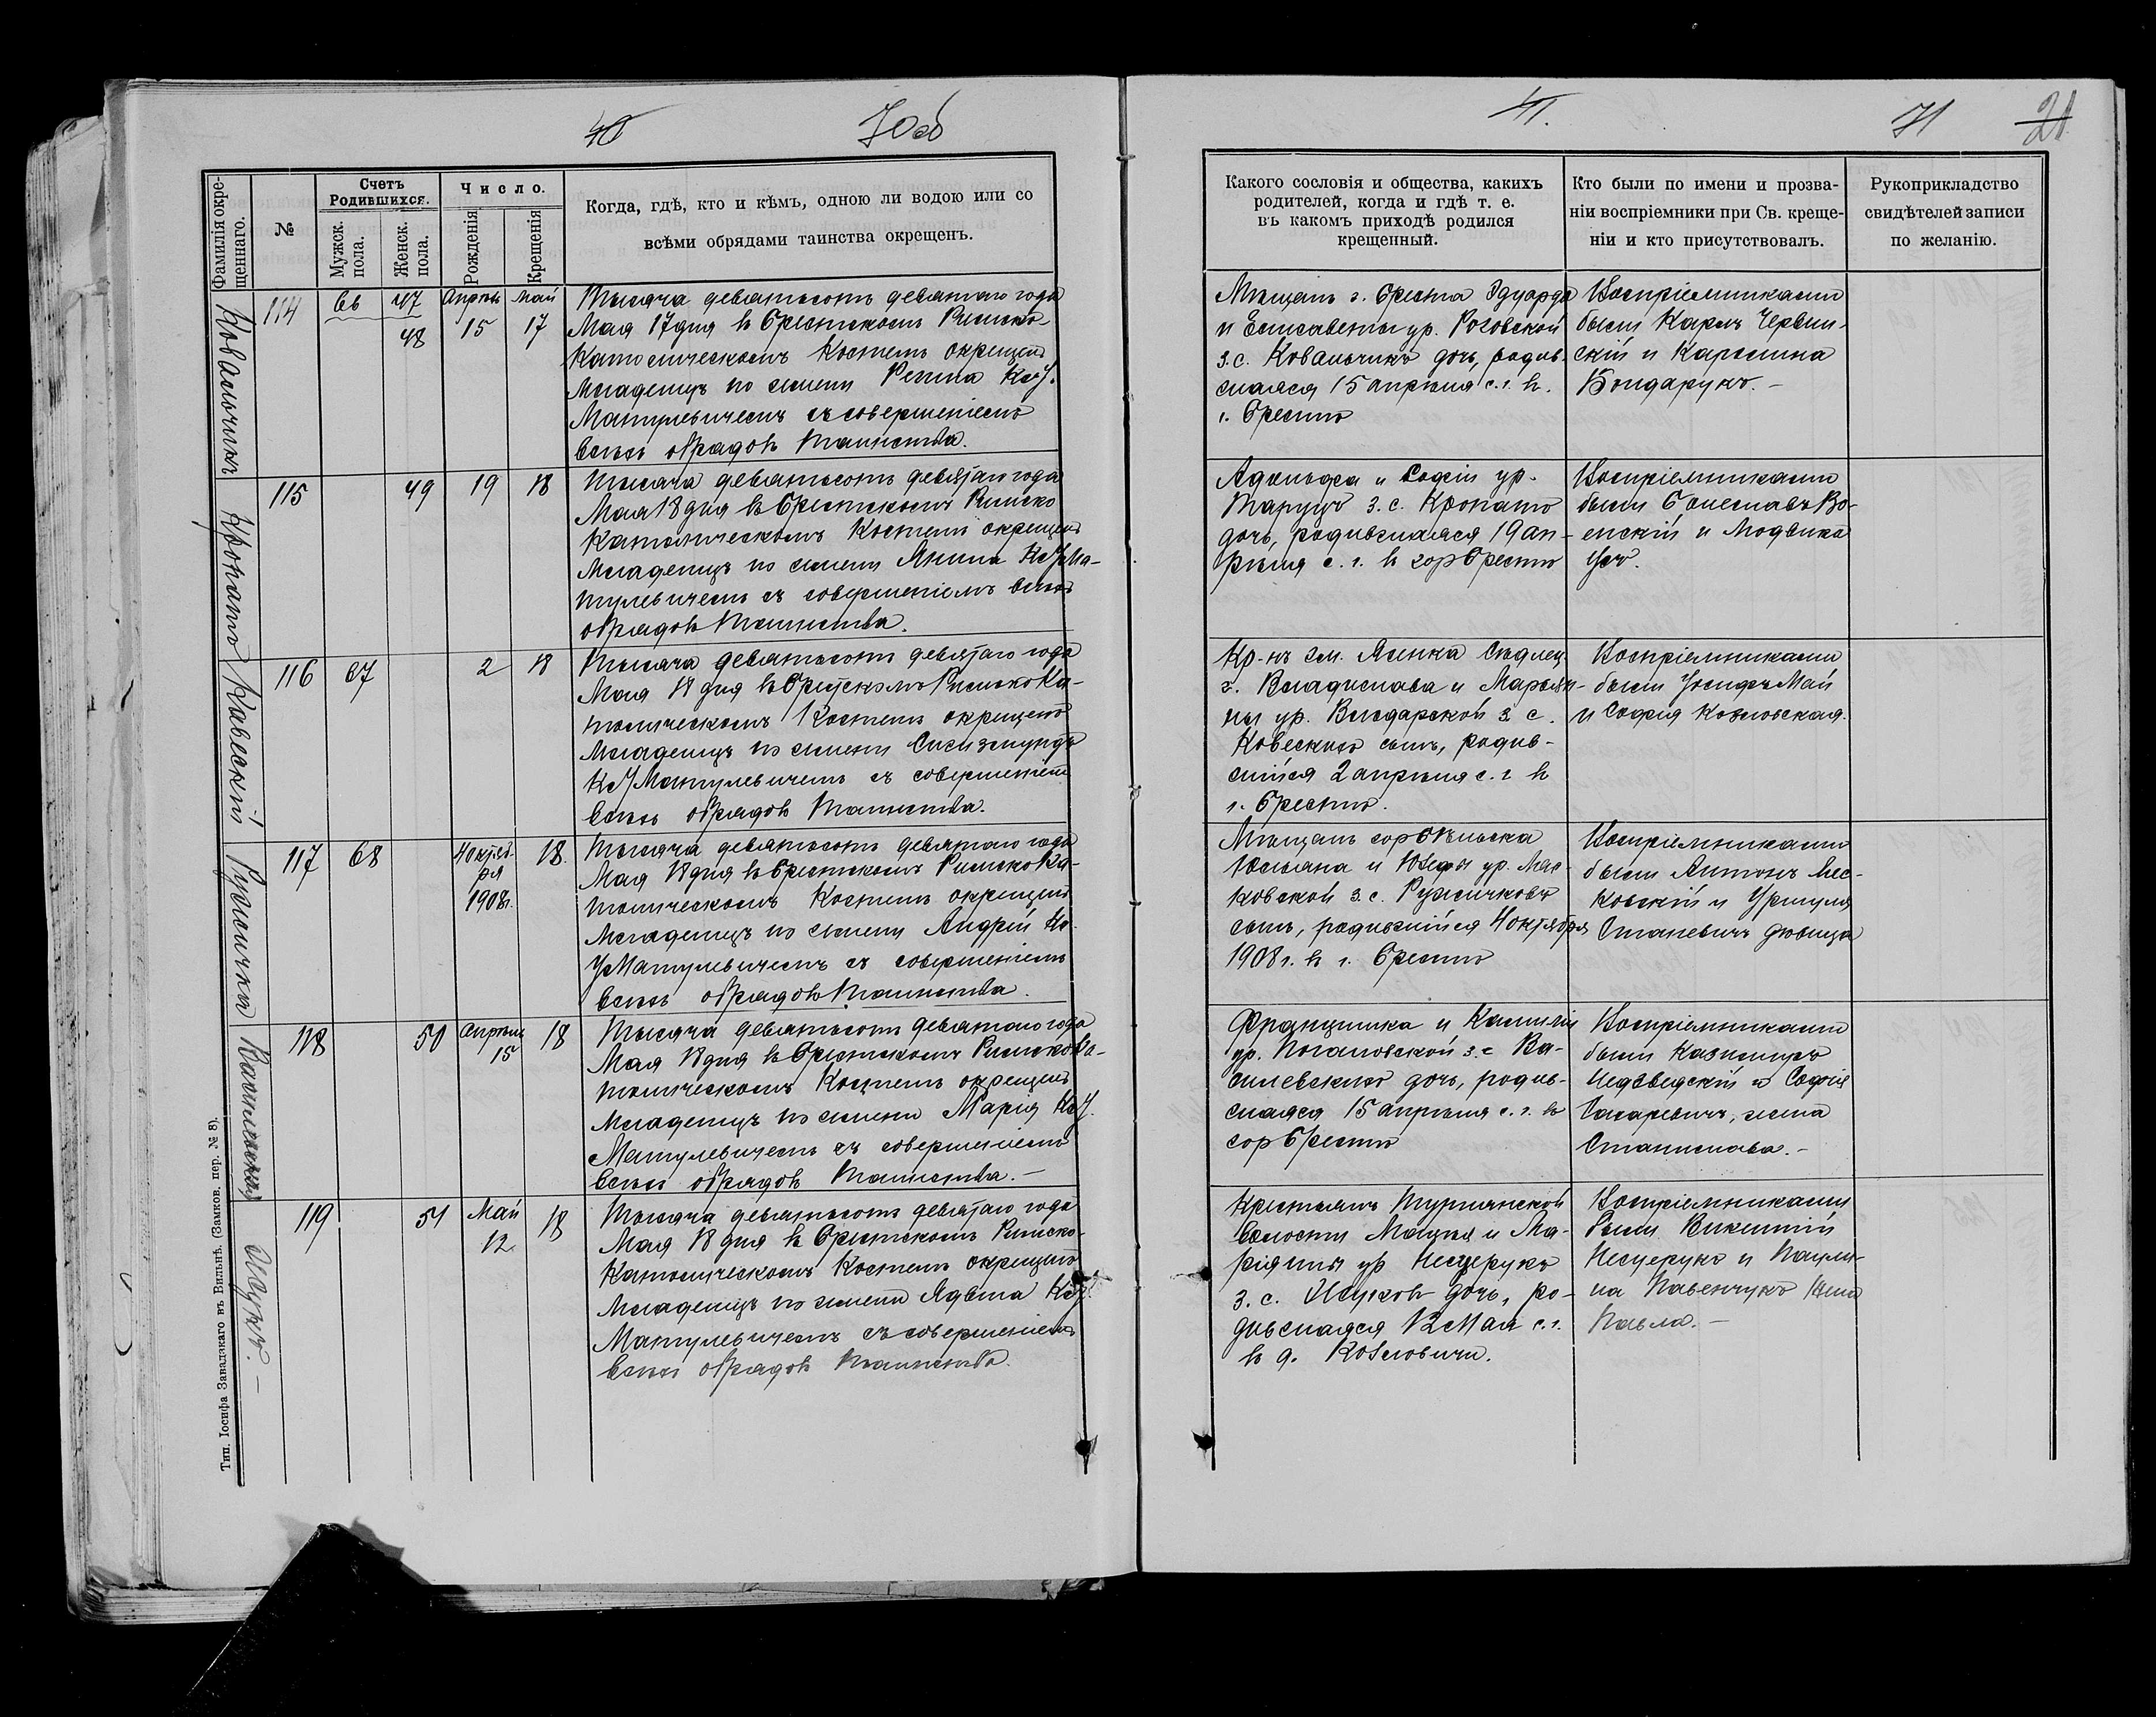 40
70об
Фамилія окре-
щеннаго.
№
Счетъ
Родившихся.
Мужск.
пола.
Женск.
пола.
Число.
Рожденія
Крещенія
Когда, гдѣ, кто и кѣмъ, одною ли водою или со
всѣми обрядами таинства окрещенъ.
Ковальчикъ
114
66
47
48
Апрѣля
15
Май
17
Тысяча девятьсотъ девятаго года
Мая 17 дня въ Брестскомъ Римско-
Католическомъ Костелѣ окрещенъ
Младенецъ по имени
Матулевичемъ съ совершеніемъ
всѣхъ обрядовъ Таинства.
Кропато
115
49
19
18
Тысяча девятьсотъ девятаго года
Мая 18 дня въ Брестскомъ Римско
Католическомъ Костелѣ окрещенъ
Младенецъ по имени Янина Кс. У. Ма-
тулевичемъ съ совершеніемъ всѣхъ
обрядовъ Таинства.
Кавескій
116
67
2
18
Тысяча девятьсотъ девятаго года
Мая 18 дня въ Брестскомъ Римско Ка-
толическомъ Костелѣ окрещенъ
Младенецъ по имени Сигизмундъ
Кс. У. Матулевичемъ съ совершеніемъ
всѣхъ обрядовъ Таинства.
Ружичка
117
68
4 октяб-
ря
1908г.
18.
Тысяча девятьсотъ девятаго года
Мая 18 дня въ Брестскомъ Римско Ка-
толическомъ Костелѣ окрещенъ
Младенецъ по имени Андрій Кс.
У Матулевичемъ съ совершеніемъ
всѣхъ обрядовъ Таинства.
118
50
Апрѣля
15
18
Тысяча девятьсотъ девятаго года
Мая 18 дня въ Брестскомъ Римско Ка-
толическомъ Костелѣ окрещенъ
Младенецъ по имени Марія Кс. У.
Матулевичемъ съ совершеніемъ
всѣхъ обрядовъ Таинства. —
Ицукъ. —
119
51
Май
12
18
Тысяча девятьсотъ девятаго года
Мая 18 дня въ Брестскомъ Римско-
Католическомъ Костелѣ окрещенъ
Младенецъ по имени Ядвига Кс. У.
Матулевичемъ съ совершеніемъ
всѣхъ обрядовъ Таинства.
Тип. Іосифа Завадзкаго въ Вильнѣ. (Замков. пер. № 8).
41.
71
21
Какого сословія и общества, какихъ
родителей, когда и гдѣ т. е.
въ какомъ приходѣ родился
крещенный.
Кто были по имени и прозва-
ніи воспріемники при Св. креще-
ніи и кто присутствовалъ.
Рукоприкладство
свидѣтелей записи
по желанію.
Мѣщанъ г. Бреста Эдуарда
и Елисаветы ур. Роговской
з.с. Ковальчикъ дочь, родив-
шаяся 15 апрѣля с.г. въ
г. Брестѣ
Воспріемниками
были Карлъ Червин-
скій и Каролина
Бондарукъ. —
Адольфа и Софіи ур.
Таруцъ з.с. Кропато
дочь, родившаяся 19 ап-
рѣля с.г. въ гор Брестѣ
Воспріемниками
были Болеславъ Во-
енскій и Людвика
Уст.
Кр-нъ гм. Ясенка Сѣдлец.
г. Владислава и Марьян-
ны ур. з. с.
Кавескихъ сынъ, родив-
шійся 2 апрѣля с. г. въ
г. Брестѣ.
Воспріемниками
были Іосифъ Май
и Софія Козловская.
Мѣщанъ гор Бѣльска
Юльяна и Юзефы ур. Мас-
ковской з.с. Ружичковъ
сынъ, родившійся 4 октября
1908 г. въ г. Брестѣ
Воспріемниками
были Антонъ Мас-
ковскій и Уршуля
Станевичъ дѣвица
Францишка и Камиліи
ур. Погановской з.с Ва-
силевскихъ дочь, родив-
шаяся 15 апрѣля с. г. въ
гор Брестѣ
Воспріемниками
были Казимиръ
Недзведскій и Софія
Макаревичъ, жена
Станислава. —
Крестьянъ Турнянской
Волости Мацея и Ма-
ріанны ур Нестерукъ
з. с. Ицуковъ дочь, ро-
дившаяся 12 Мая с.г.
въ д. Козловичи.
Воспріемниками
были Викентій
Нестерукъ и Паули-
на Павенчукъ жена
Павла. —